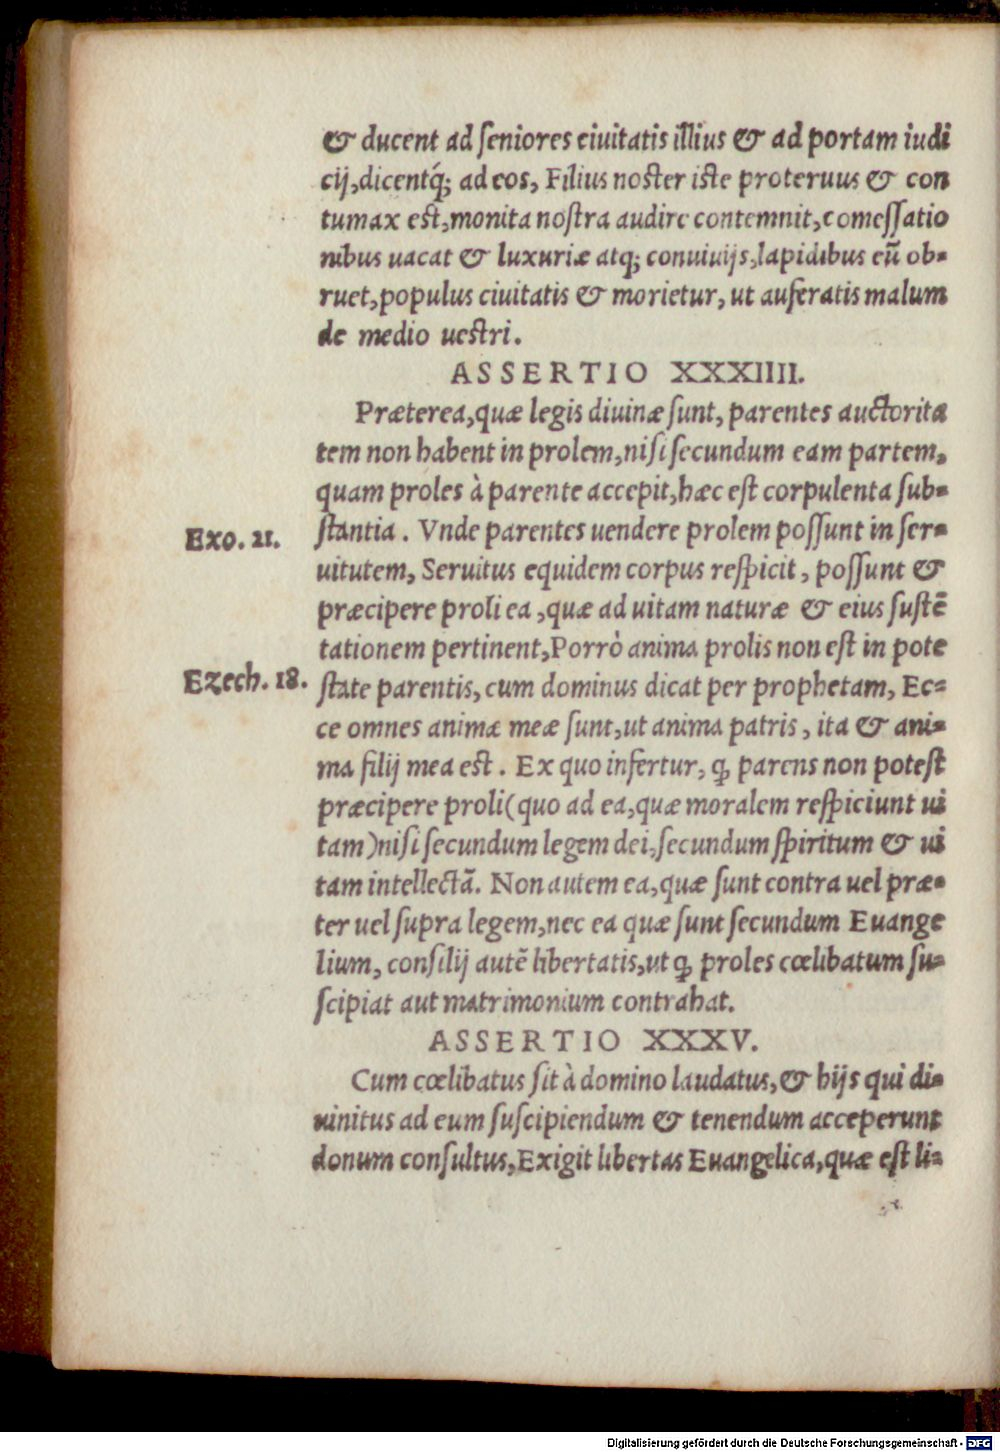 & ducent ad ſeniores ciuitatis illius & ad portam iudi
cij, dicentq́; ad eos, Filius noſter iſte proteruus & con
tumax eſt, monita noſtra audire contemnit, comeſſatio
nibus uacat & luxuriæ atq; conuiuijs, lapidibus eū ob-
ruet, populus ciuitatis & morietur, ut auferatis malum
de medio ueſtri.
ASSERTIO XXXIIII.
Præterea, quæ legis diuinæ ſunt, parentes auctorita
tem non habent in prolem, niſi ſecundum eam partem,
quam proles à parente accepit, hæc eſt corpulenta ſub-
Exo. 21. ſtantia. Vnde parentes uendere prolem poſſunt in ſer-
uitutem, Seruitus equidem corpus reſpicit, poſſunt &
præcipere proli ea, quæ ad uitam naturæ & eius ſuſtē
tationem pertinent, Porrò anima prolis non eſt in pote
Ezech. 18. ſtate parentis, cum dominus dicat per prophetam, Ec-
ce omnes animæ meæ ſunt, ut anima patris, ita & ani-
ma filij mea eſt. Ex quo infertur, ꝙ parens non poteſt
præcipere proli (quo ad ea, quæ moralem reſpiciunt ui
tam) niſi ſecundum legem dei, ſecundum ſpiritum & ui
tam intellectā. Non autem ea, quæ ſunt contra uel præ-
ter uel ſupra legem, nec ea quæ ſunt ſecundum Euange
lium, conſilij autē libertatis, ut ꝙ proles cœlibatum ſu-
ſcipiat aut matrimonium contrahat.
ASSERTIO XXXV.
Cum cœlibatus ſit à domino laudatus, & hijs qui di-
uinitus ad eum ſuſcipiendum & tenendum acceperunt
donum conſultus, Exigit libertas Euangelica, quæ eſt li-
Digitalisierung gefördert durch die Deutsche Forschungsgemeinschaft - DFG